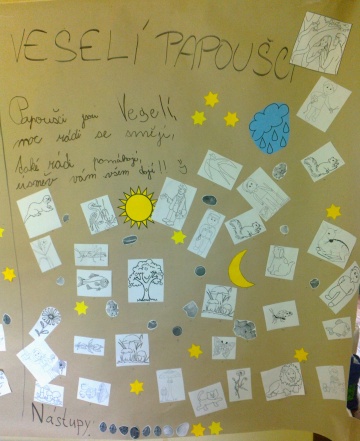 VESELÍ PAPOUŠCI
Papoušci jsou Veselí,
moc rádi se smějí,
také rádi pomáhají,
úsměv vám všem dají!! :)
Nástupy: